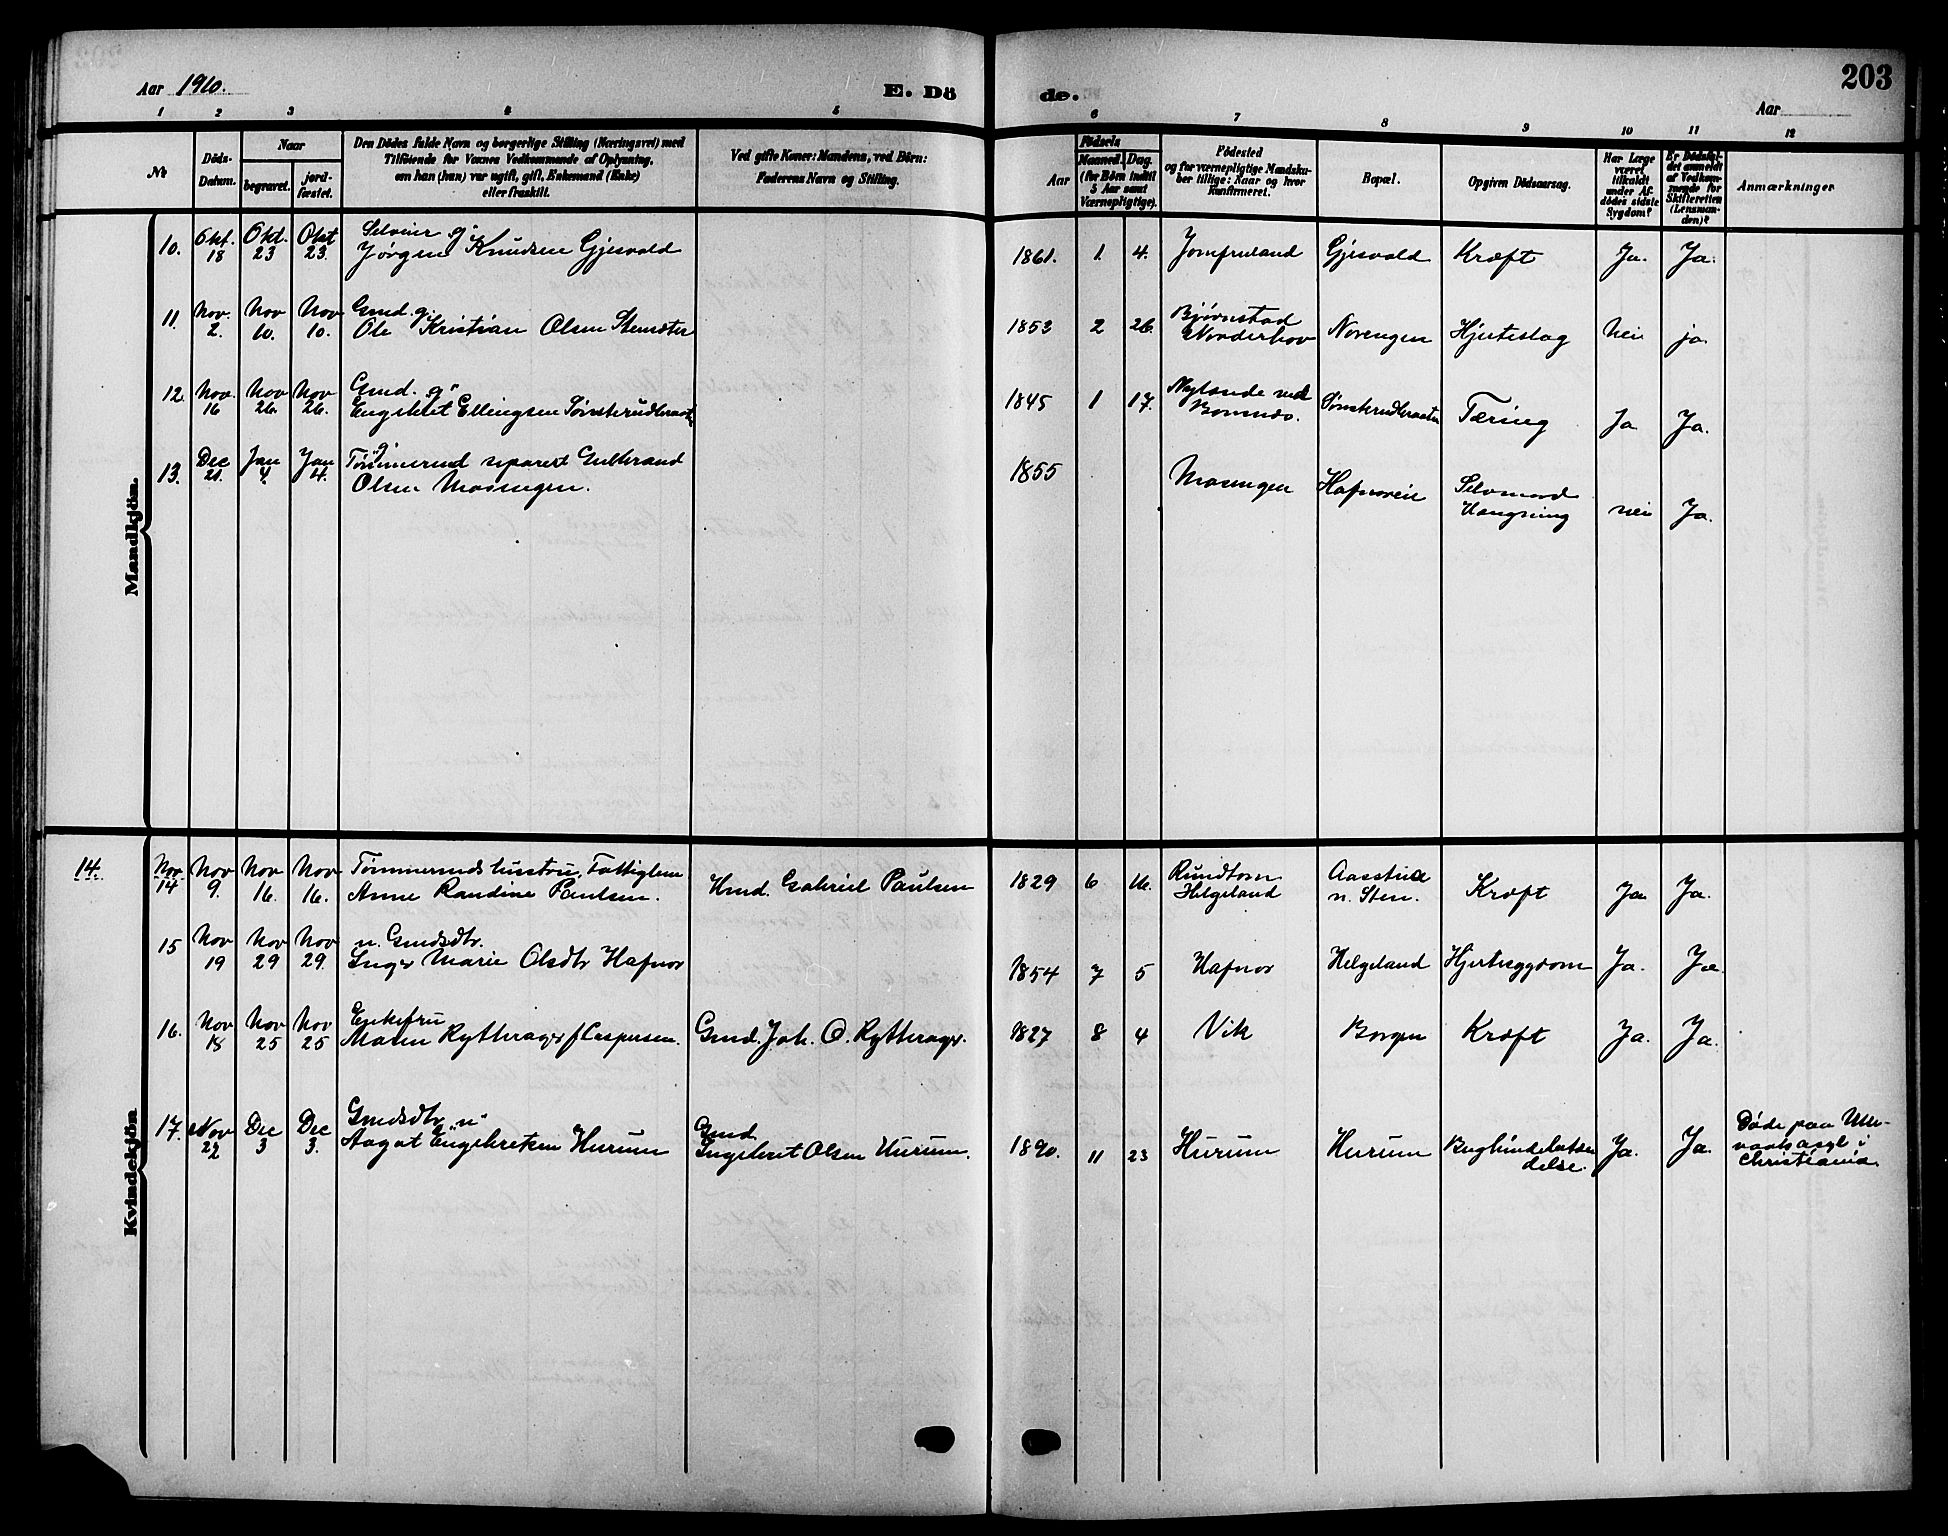 Aar 1910.
E. Dö
de.
203
Aar
1 2 3 4 5 6 7 8 9 10 11 12
No
Döds-
Datum.
Naar
begravet.
jord-
fæstet.
Den Dödes fulde Navn og borgerlige Stilling (Næringsvei) med
Tilföiende for Voxnes Vedkommende af Oplysning,
om han (hun) var ugift, gift, Enkemand (Enke)
eller fraskilt.
Ved gifte Koner: Mandens, ved Börn:
Faderens Navn og Stilling.
Födsels
Aar
Maaned. Dag.
(for Börn indtil
5 Aar samt
Værnepligtige).
Födested
og for værnepligtige Mandska-
ber tillige: Naar og hvor
konfirmeret.
Bopæl.
Opgiven Dödsaarsag.
Har Læge
været
tilkaldt
under Af-
dödes sidste
Sygdom?
Er Dödsfal-
det anmeldt
af Vedkom-
mende for
Skifteretten
(Lensman-
den)?
Anmærkninger
Mandkjön.
10. Okt. 18 Okt. 23 Okt 23. Selveier g.
Jørgen Knudsen Gjesvold 1861. 1. 4. Jomfruland Gjesvold Kræft Ja. Ja.
11. Nov. 2. Nov 10. Nov 10. Gmd. g.
Ole Kristian Olsen 1853 2 26. Bjørnstad
Norderhov Norengen Hjerteslag Nei ja.
12. Nov. 16 Nov 26. Nov 26. Gmd. g.
Engebret Ellingsen 1845 1 17. Tæring Ja Ja.
13. Dec 21. Jan 4. Jan 4. g.
Tømmermd separert Gulbrand
Olsen Mosengen. 1855 Mosengen Selvmord
Hængning nei Ja.
Kvindekjön
14.
Nov 14 Nov 9. Nov 16. Nov 16. Tømmermds hustru, Fattiglem
Anne Randine Paulsen. Hmd. Gabriel Paulsen 1829 6 16. Rundtom
Helgeland
n. Sten. Kræft Ja Ja.
15 Nov 19 Nov 29 Nov 29. u. Gmdsdtr.
Inger Marie Olsdtr Hafnor 1854 7 5 Hafnor Helgeland Hjertesygdom Ja. Ja.
16. Nov 18 Nov 25 Nov 25 Enkefru
Maren Rytterager f Caspersen. Gmd. Joh. O. Rytterager. 1827 8 4 Vik Borgen Kræft Ja. Ja.
17. Nov 22 Dec 3 Dec 3. Gmdsdtr. u
Aagot Engebretsen Hurum Gmd.
Engebret Olsen Hurum. 1890. 11 23 Hurum Hurum Bughindebetæn
delse. Ja. Ja. Døde paa Ulle-
vaals asyl i
Christiania